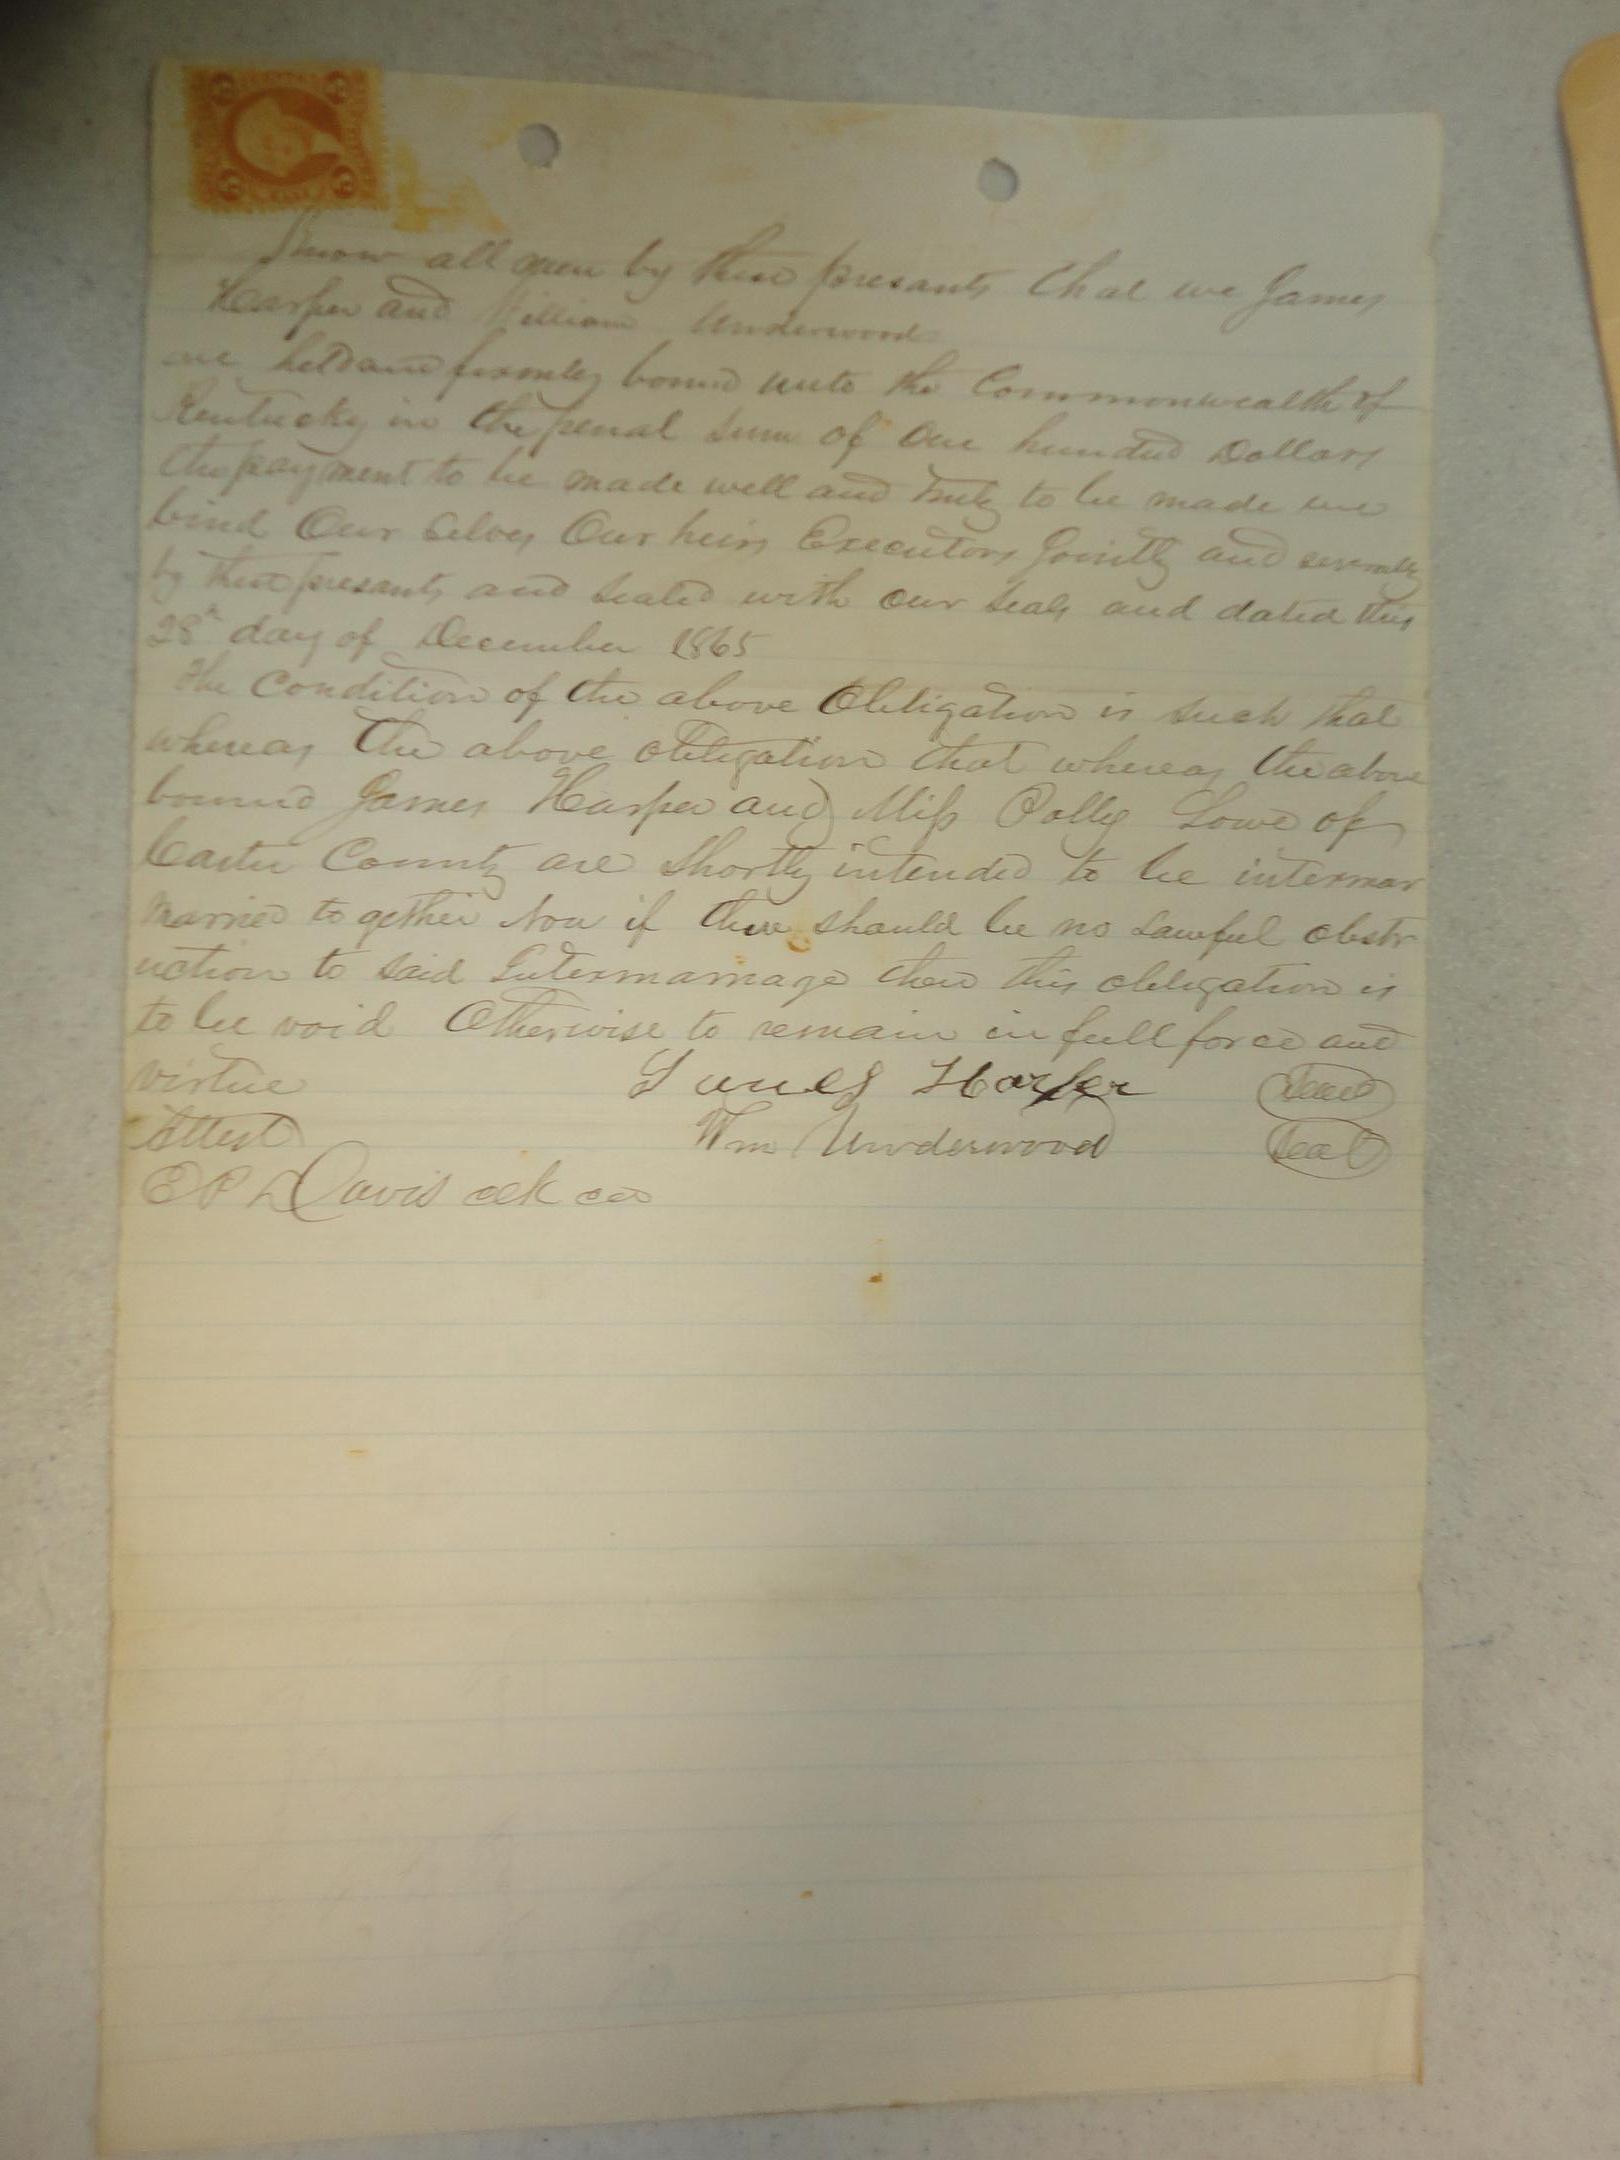 Know all men by these presants that we James
Harper and William Underwood
are held and firmly bound unto the Commonwealth of
Kentucky in the penal sum of One hundred Dollars
the payment to be made well and truly to be made we
bind Our Selves Our heirs Executors Jointly and severally
by these presants and sealed with our seals and dated this
28th day of December 1865
The Condition of the above Obligation is such that
whereas the above obligation that whereas the above
bound James Harper and Miss Polly Lowe of
Carter County are shortly intended to be intermar
married to gether Now if there should be no Lawful obstr
uction to said Intermarriage then this obligation is
to be void Otherwise to remain in full force and
virtue James Harper Seal
Attest Wm Underwood Seal
E P Davis clk